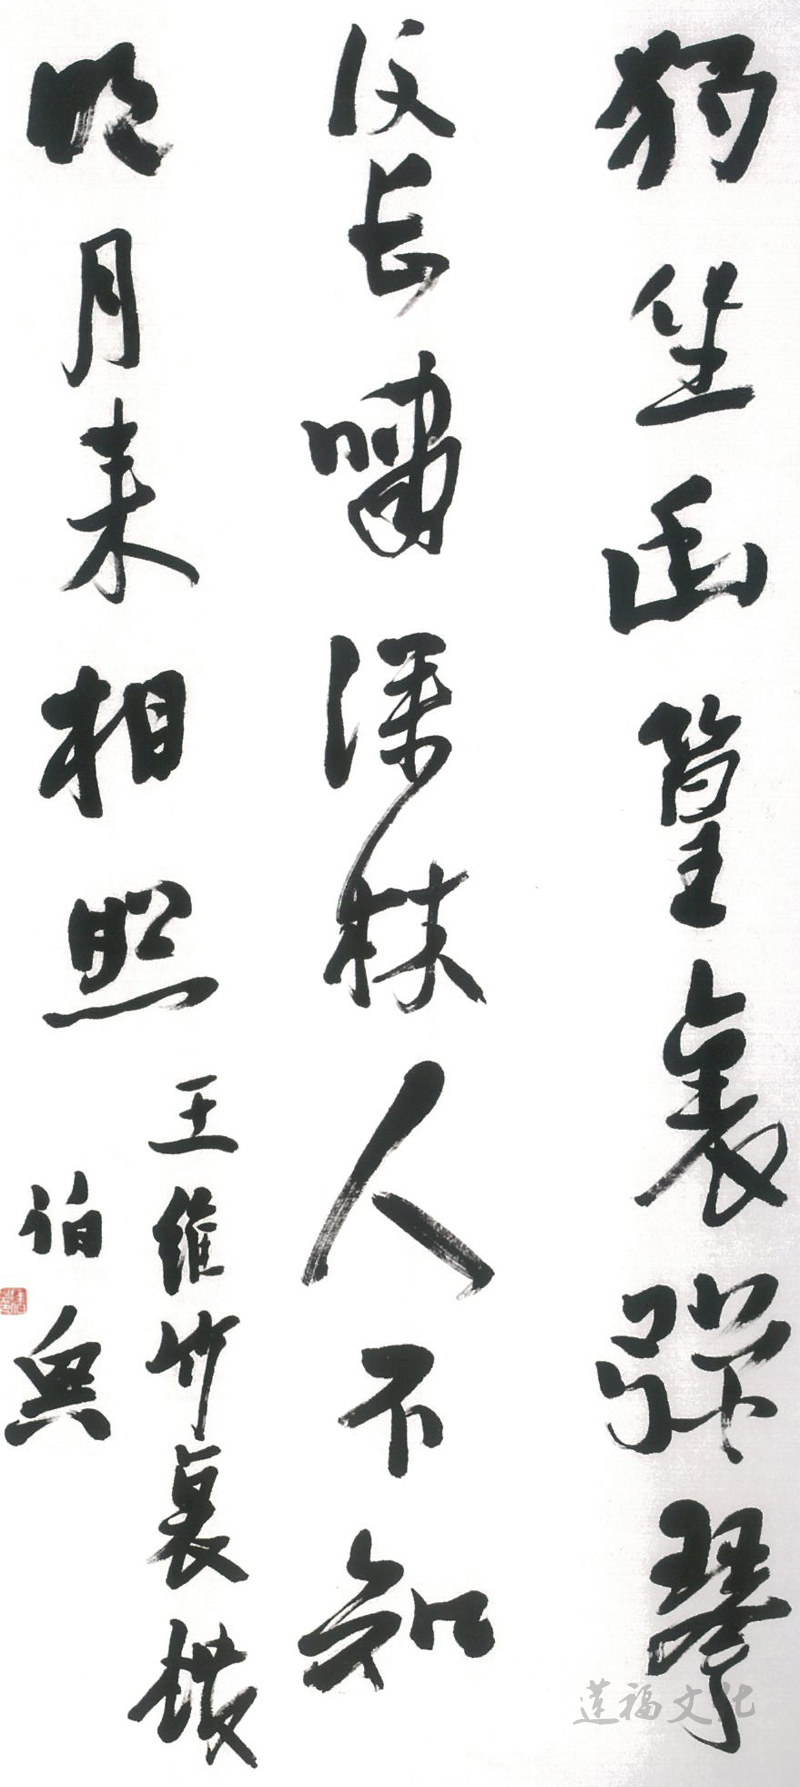 獨坐幽篁裏彈琴
復長嘯深林人不知
明月来相照
王維竹裏館
伯
蓮福文化